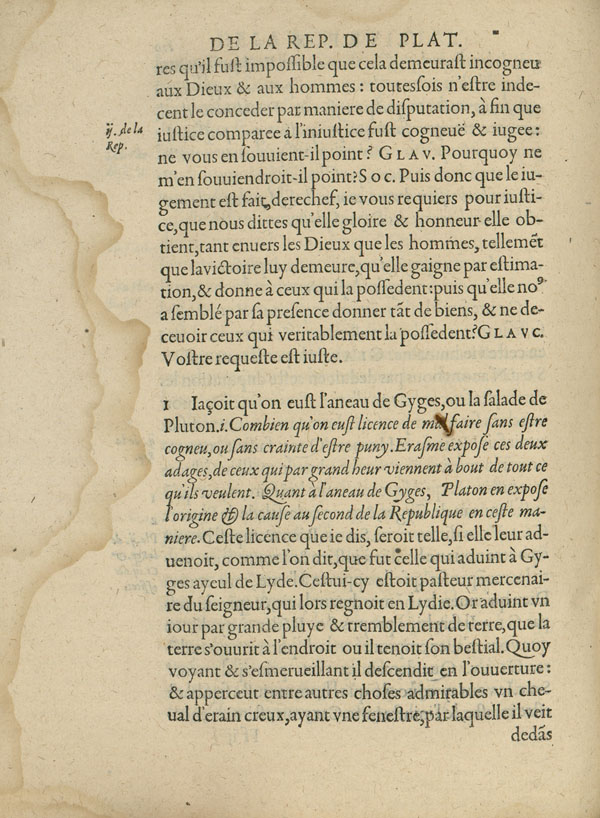 DE LA REP. DE PLAT.
res qu'il fuſt impoſſible que cela demeuraſt incogneu
aux Dieux & aux hommes : touteſois n'eſtre inde-
cent le conceder par maniere de diſputation, à fin que
ij. de la
Rep.
iuſtice comparee à l'iniuſtice fuſt cogneuë & iugee:
ne vous en ſouuient-il point? GLAV. Pourquoy ne
m'en ſouuiendroit-il point? SOC. Puis donc que le iu-
gement eſt fait, derechef, ie vous requiers pour iuſti-
ce, que nous dittes qu'elle gloire & honneur elle ob-
tient, tant enuers les Dieux que les hommes, tellemẽt
que la victoire luy demeure, qu'elle gaigne par eſtima-
tion, & donne à ceux qui la poſſedent: puis qu'elle noꝰ
a ſemblé par ſa preſence donner tãt de biens, & ne de-
ceuoir ceux qui veritablement la poſſedent? GLAVC.
Voſtre requeſte eſt iuſte.
1 Iaçoit qu'on euſt l'aneau de Gyges, ou la ſalade de
Pluton. i. Combien qu'on euſt licence de mal faire ſans eſtre
cogneu, ou ſans crainte d'eſtre puny. Eraſme expoſe ces deux
adages, de ceux qui par grand heur viennent à bout de tout ce
qu'ils veulent. Quant à l'aneau de Gyges, Platon en expoſe
l'origine & la cauſe au ſecond de la Republique en ceſte ma-
niere. Ceſte licence que ie dis, ſeroit telle, ſi elle leur ad-
uenoit, comme l'on dit, que fut celle qui aduint à Gy-
ges ayeul de Lyde. Ceſtui-cy eſtoit paſteur mercenai-
re du ſeigneur, qui lors regnoit en Lydie. Or aduint vn
iour par grande pluye & tremblement de terre, que la
terre s'ouurit à l'endroit ou il tenoit ſon beſtial. Quoy
voyant & s'eſmerueillant il deſcendit en l'ouuerture:
& apperceut entre autres choſes admirables vn che-
ual d'erain creux, ayant vne feneſtre, par laquelle il veit
dedãs